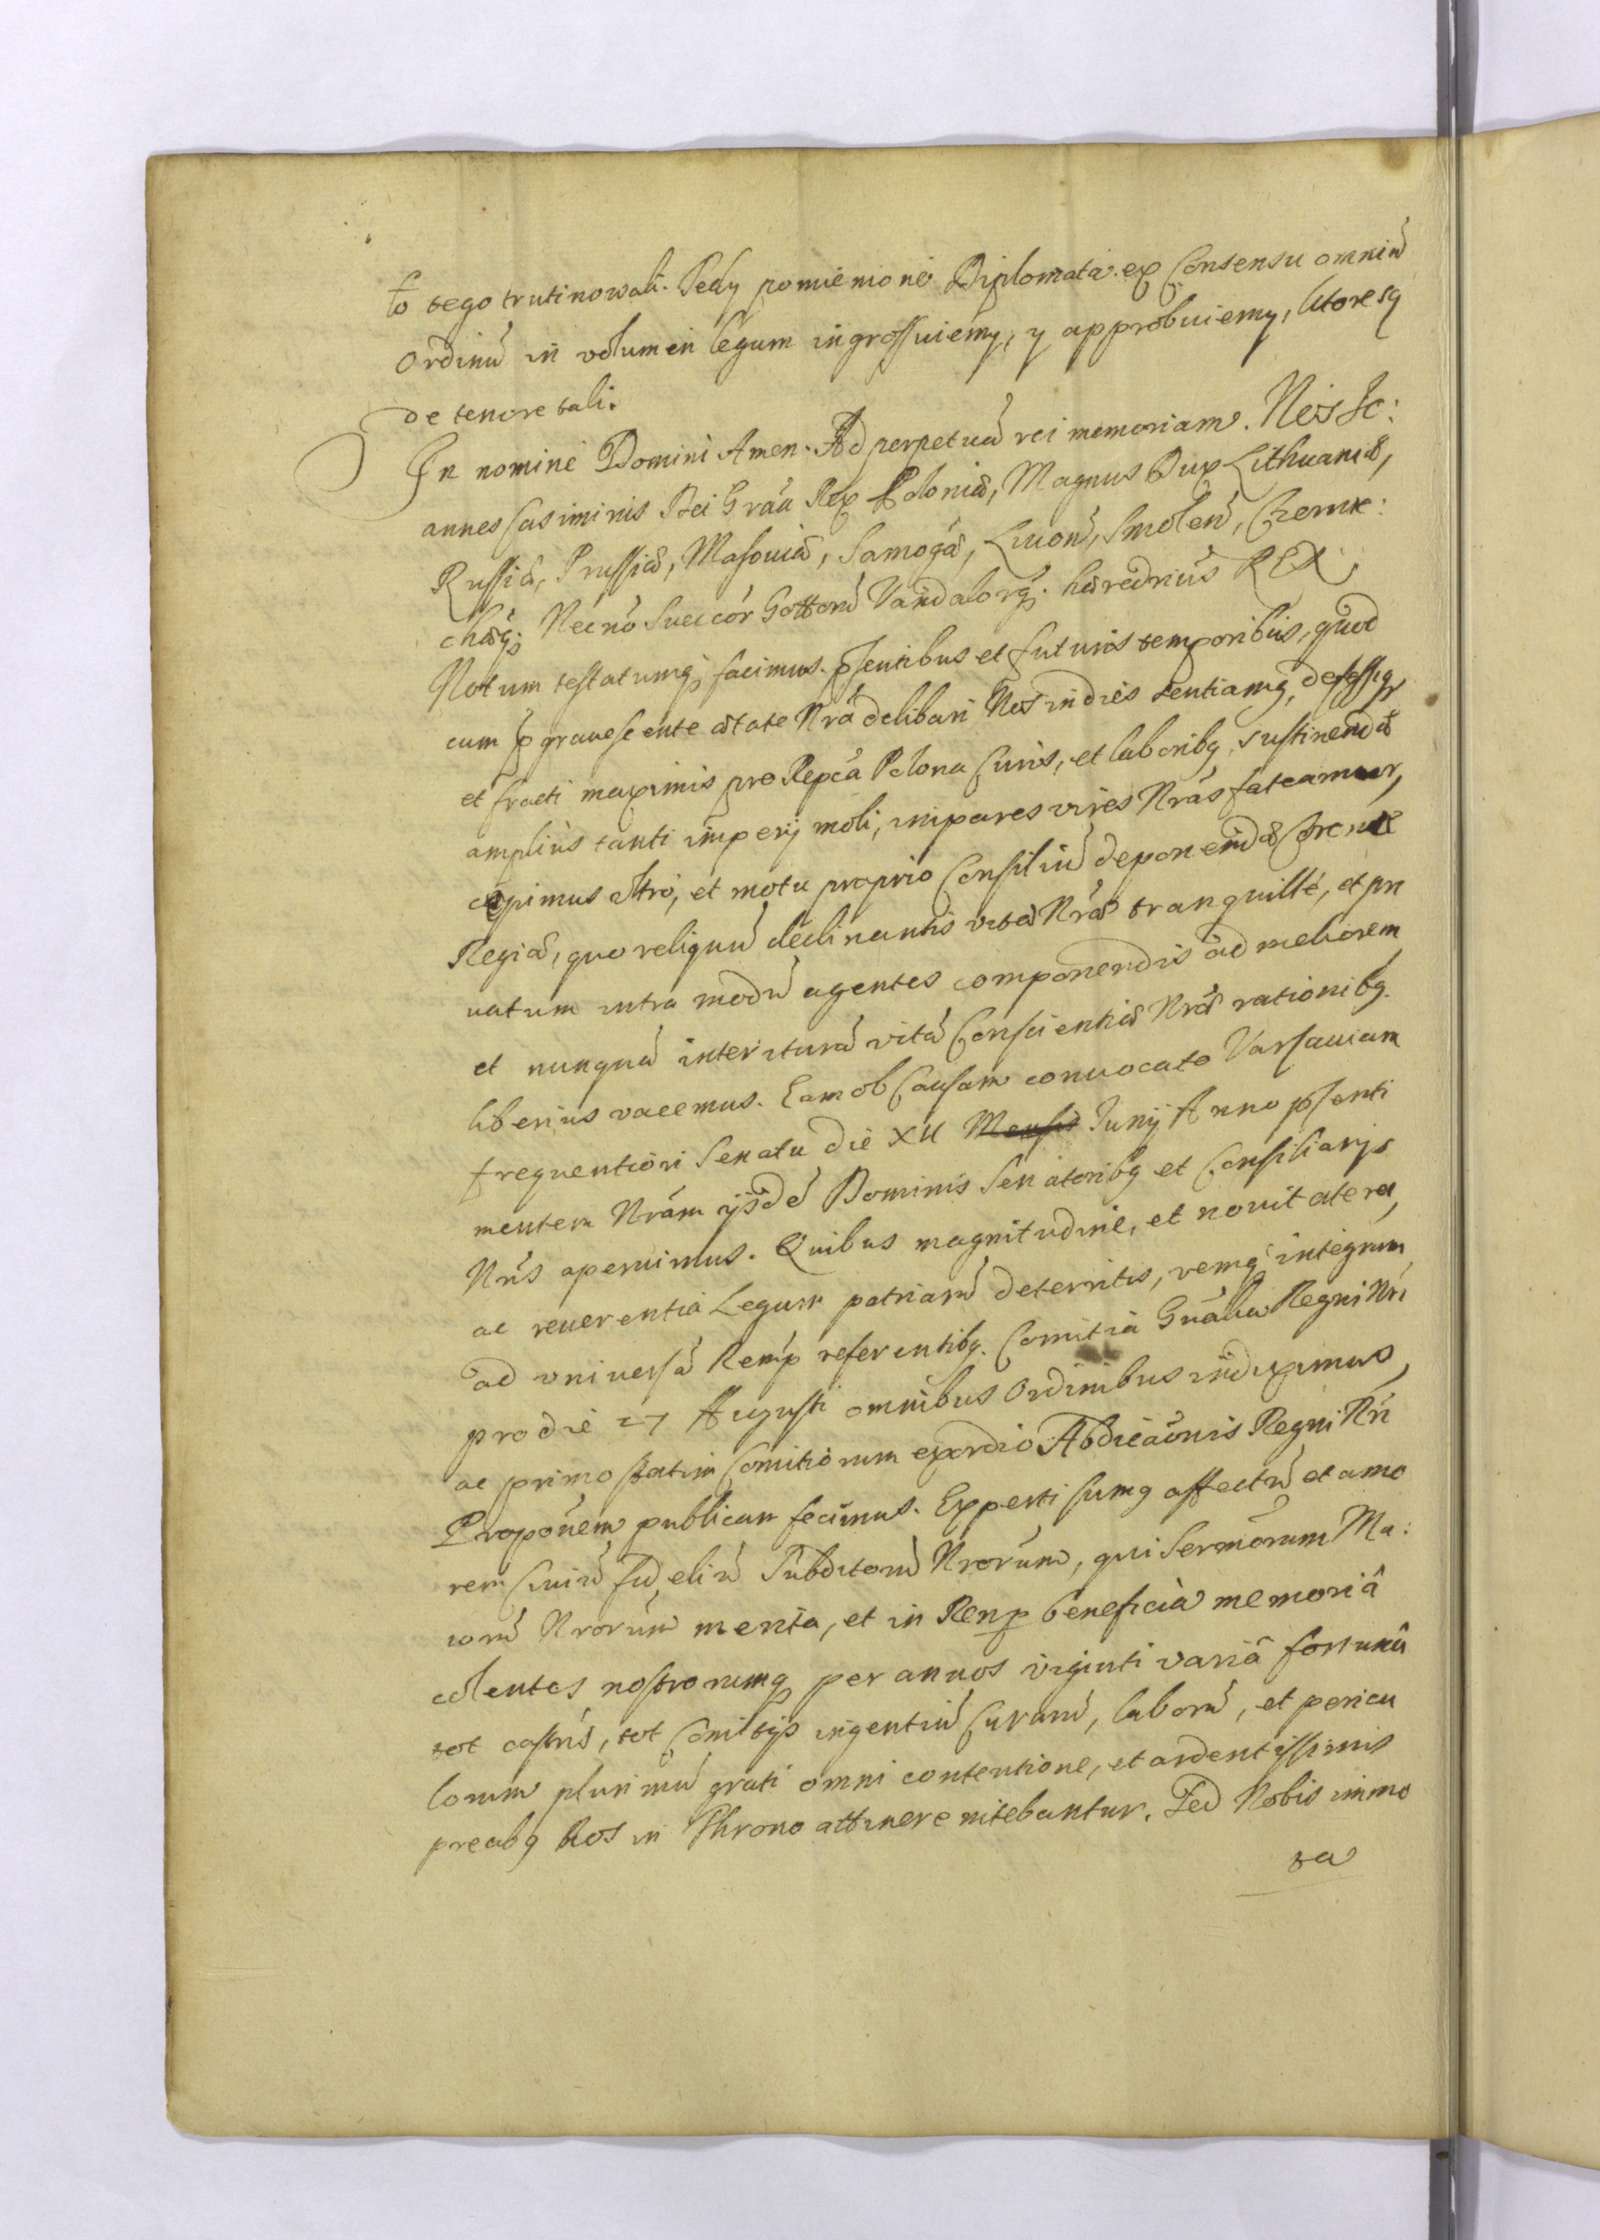 to tego trutinowali. Tedy pomienione Diplomata ex Consensu omniu͂
Ordinu͂ in volumen legum ingrossuiemy, y approbuiemy, ktoresą
de tenore tali.
In nomine Domini Amen. Ad perpetua͂ rei memoriam. Nos Jo:
annes Casimirus Dei Gra͂a Rex Poloniæ, Magnus Dux Lithuaniæ,
Russiæ, Prussiæ, Masouiæ, Samogæ, Liuon͂, Smolen͂, Czernie:
chæq; Necno͂ Suecor͂ Gottoru͂ Vandalorq; hæredrius REX,
Notum testatumq; facimus. p͂sentibus et futuris temporibus, quod
cum p grauescente ætate Nra͂ delibari Nos indies sentiamq, defessiq
et fracti maximis pro Repca͂ Polona Curis, et laboribq, sustinendæ
amplius tanti imperij moli, impares vires Nra͂s fateamur,
cæpimus Vltro, et motu proprio Consiliu͂ deponendæ Coronæ
Regiæ, quo reliquu͂ declinantis vitæ Nræ tranquille, et pri
uatum intra modu͂ agentes componendis ad meliorem
et nunqua͂ interitura͂ vita͂ Conscientiæ Nræ rationibq.
liberius vacemus. Eam ob Causam conuocato Varsauiam
frequentiori Senatu die XII Mensis Junij Anno p͂senti
mentem Nra͂m ijsde͂ Dominis Senatoribq et Consiliarijs
Nr͂is aperuimus. Quibus magnitudine, et nouitate rei,
ac reuerentia Legum patriaru͂ deterritis, remq integram
ad vniuersa͂ Remp referentibq. Comitia Gn͂alia Regni Nri
pro die 27 Augusti omnibus Ordinibus indiximus,
ac primo statim Comitiorum exordio Abdica͂onis Regni Nri
Propo͂nem publicam fecimus. Experti sumq affectu͂ et amo
rem Ciuiu͂ fideliu͂ Subditoru͂ Nrorum, qui Sermorum Ma:
ioru͂ Nrorum merita, et in Remp beneficia memoriâ
colentes nostrorumq per annos viginti variâ fortunâ
tot castris, tot Comitijs ingentiu͂ Curaru͂, laboru͂, et pericu
lorum plurimu͂ grati omni contentione, et ardentissimis
precibq Nos in Throno attinere nitebantur. Sed Nobis immo
ta